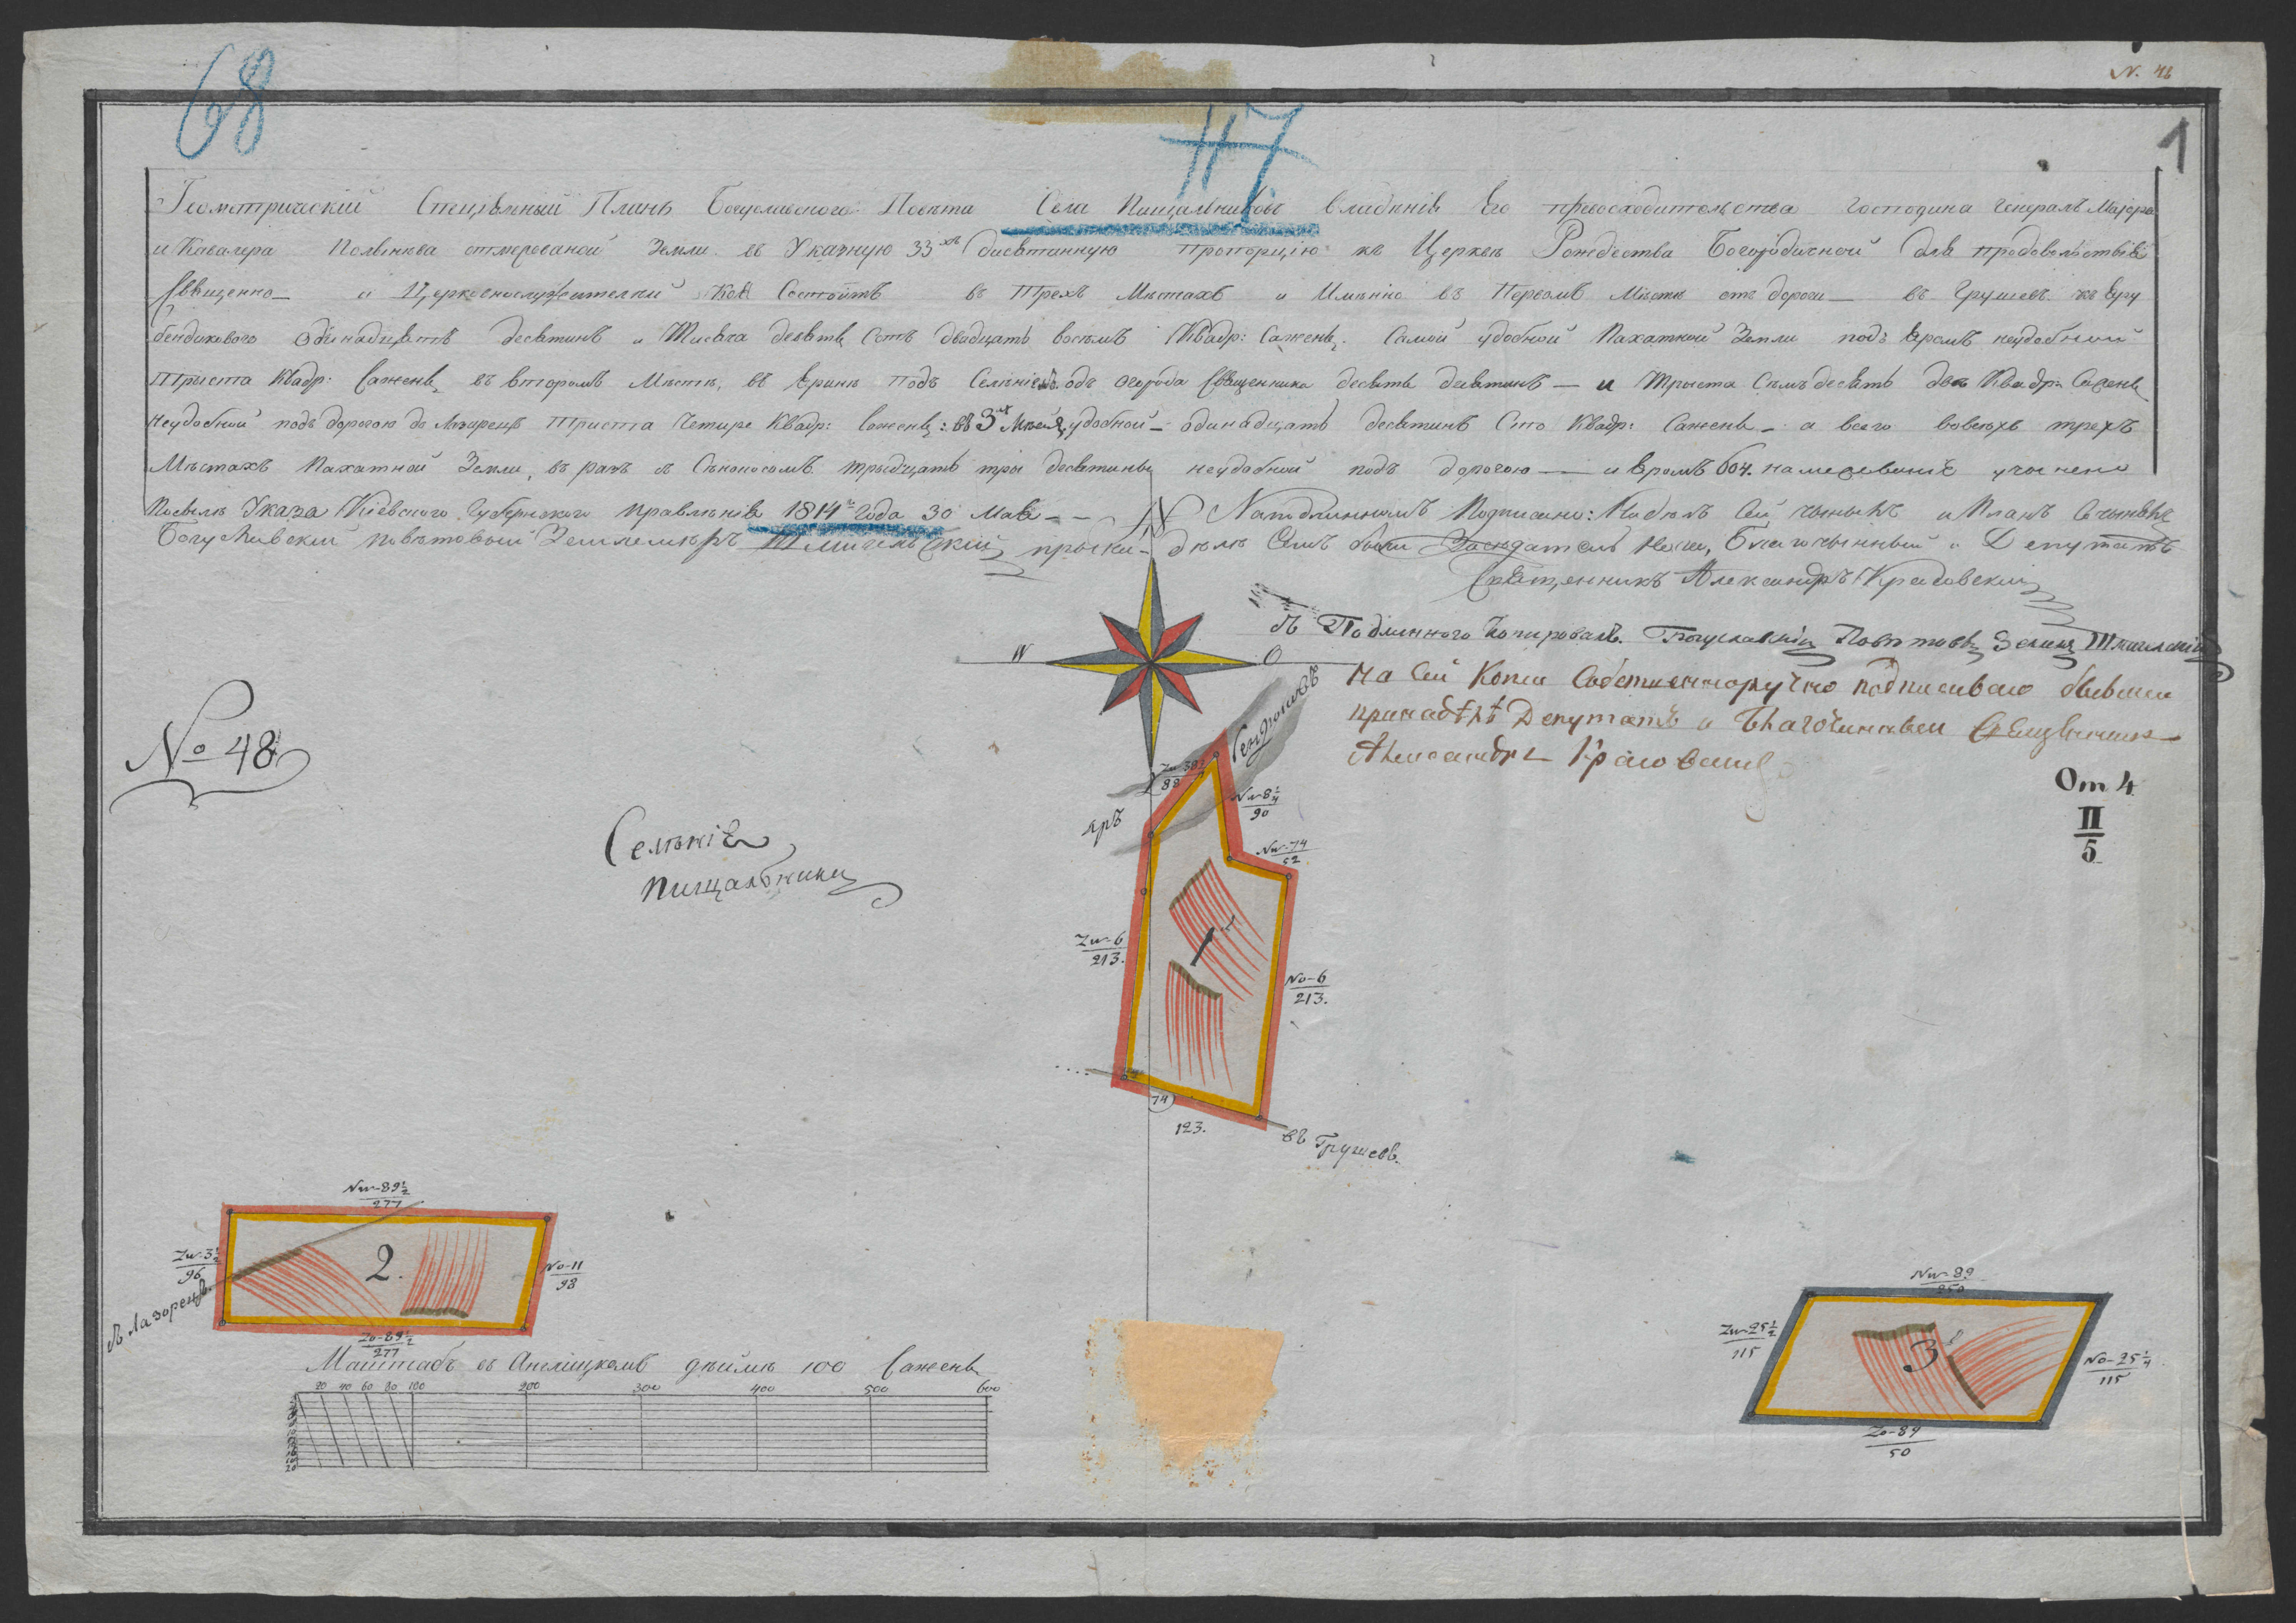 68
117
N. 48
1
Геометрический Специальный Планъ Богуславского Повѣта Села Пищальниковъ владѣнія Его превосходительства господина Генералъ Маіора
и Кавалера отмерованой Земли въ Указную 33хъ десятинную пропорцію къ Церкви Рождества Богородичной для продовольствія
Священно и Церковнослужителей Коя Состоитъ въ Трехъ Мѣстахъ и Имѣнно въ Первомъ Мѣстѣ отъ дороги въ Грушевъ къ Яру
бендюкового одинадцять десятинъ и Тисяча девять Сотъ двадцать восемъ Квадр: Сажень. Самой удобной Пахатной Земли подъ Яромъ неудобной
Триста Квадр: Сажень въ второмъ Мѣстѣ, подъ Селѣніемъ одъ огорода Священника десять десятинъ — и триста Семъ десятъ два Квадр: Сажень
неудобной подъ дорогою до Лазорецъ триста Четире Квадр: Сажень: въ 3м Мѣстѣ удобной — одинадцать десятинъ Сто Квадр: Сажень — а всего вовсехъ трехъ
Мѣстахъ Пахатной Земли, въ разъ съ Сѣнокосомъ тридцать три десятины неудобной подъ дорогою — и Яромъ 604. намежеваніе учинено
Посилѣ Указа Кіевского Губернского правлѣнія 1814го Года 30 Мая — — N Наподлинномъ Подписано: Чинилъ и Планъ Сочинялъ
Богуславский повѣтовый Землемѣръ при были Засѣдатель Благочинный и Депутатъ
Священникъ Александръ Краковский
Съ Подлинного Копировалъ. Богуславский Повѣтовы Землем
На Сей Копіи Собственноручно подписиваю бывший
Депутатъ и Благочинный Священникъ
Александръ
W
O
От 4
II
5
No 48
Селѣніе
Пищальники
Яръ
Бендюковъ
Zw-38½
88
Nw-8¼
90
Nw-74
52
1
Zw-6
213.
No-6
213.
74
123.
въ Грушевъ.
Nw-89½
277
Zw-3½
96
2.
No-11
98
съ Лазорецъ
Zo-89½
277
Nw-89
250
Zw-25½
115
3
No-25¼
115
Zo-89
50
Маштабъ въ Англіцкомъ дюймѣ 100 Сажень
20 40 60 80 100 200 300 400 500 600